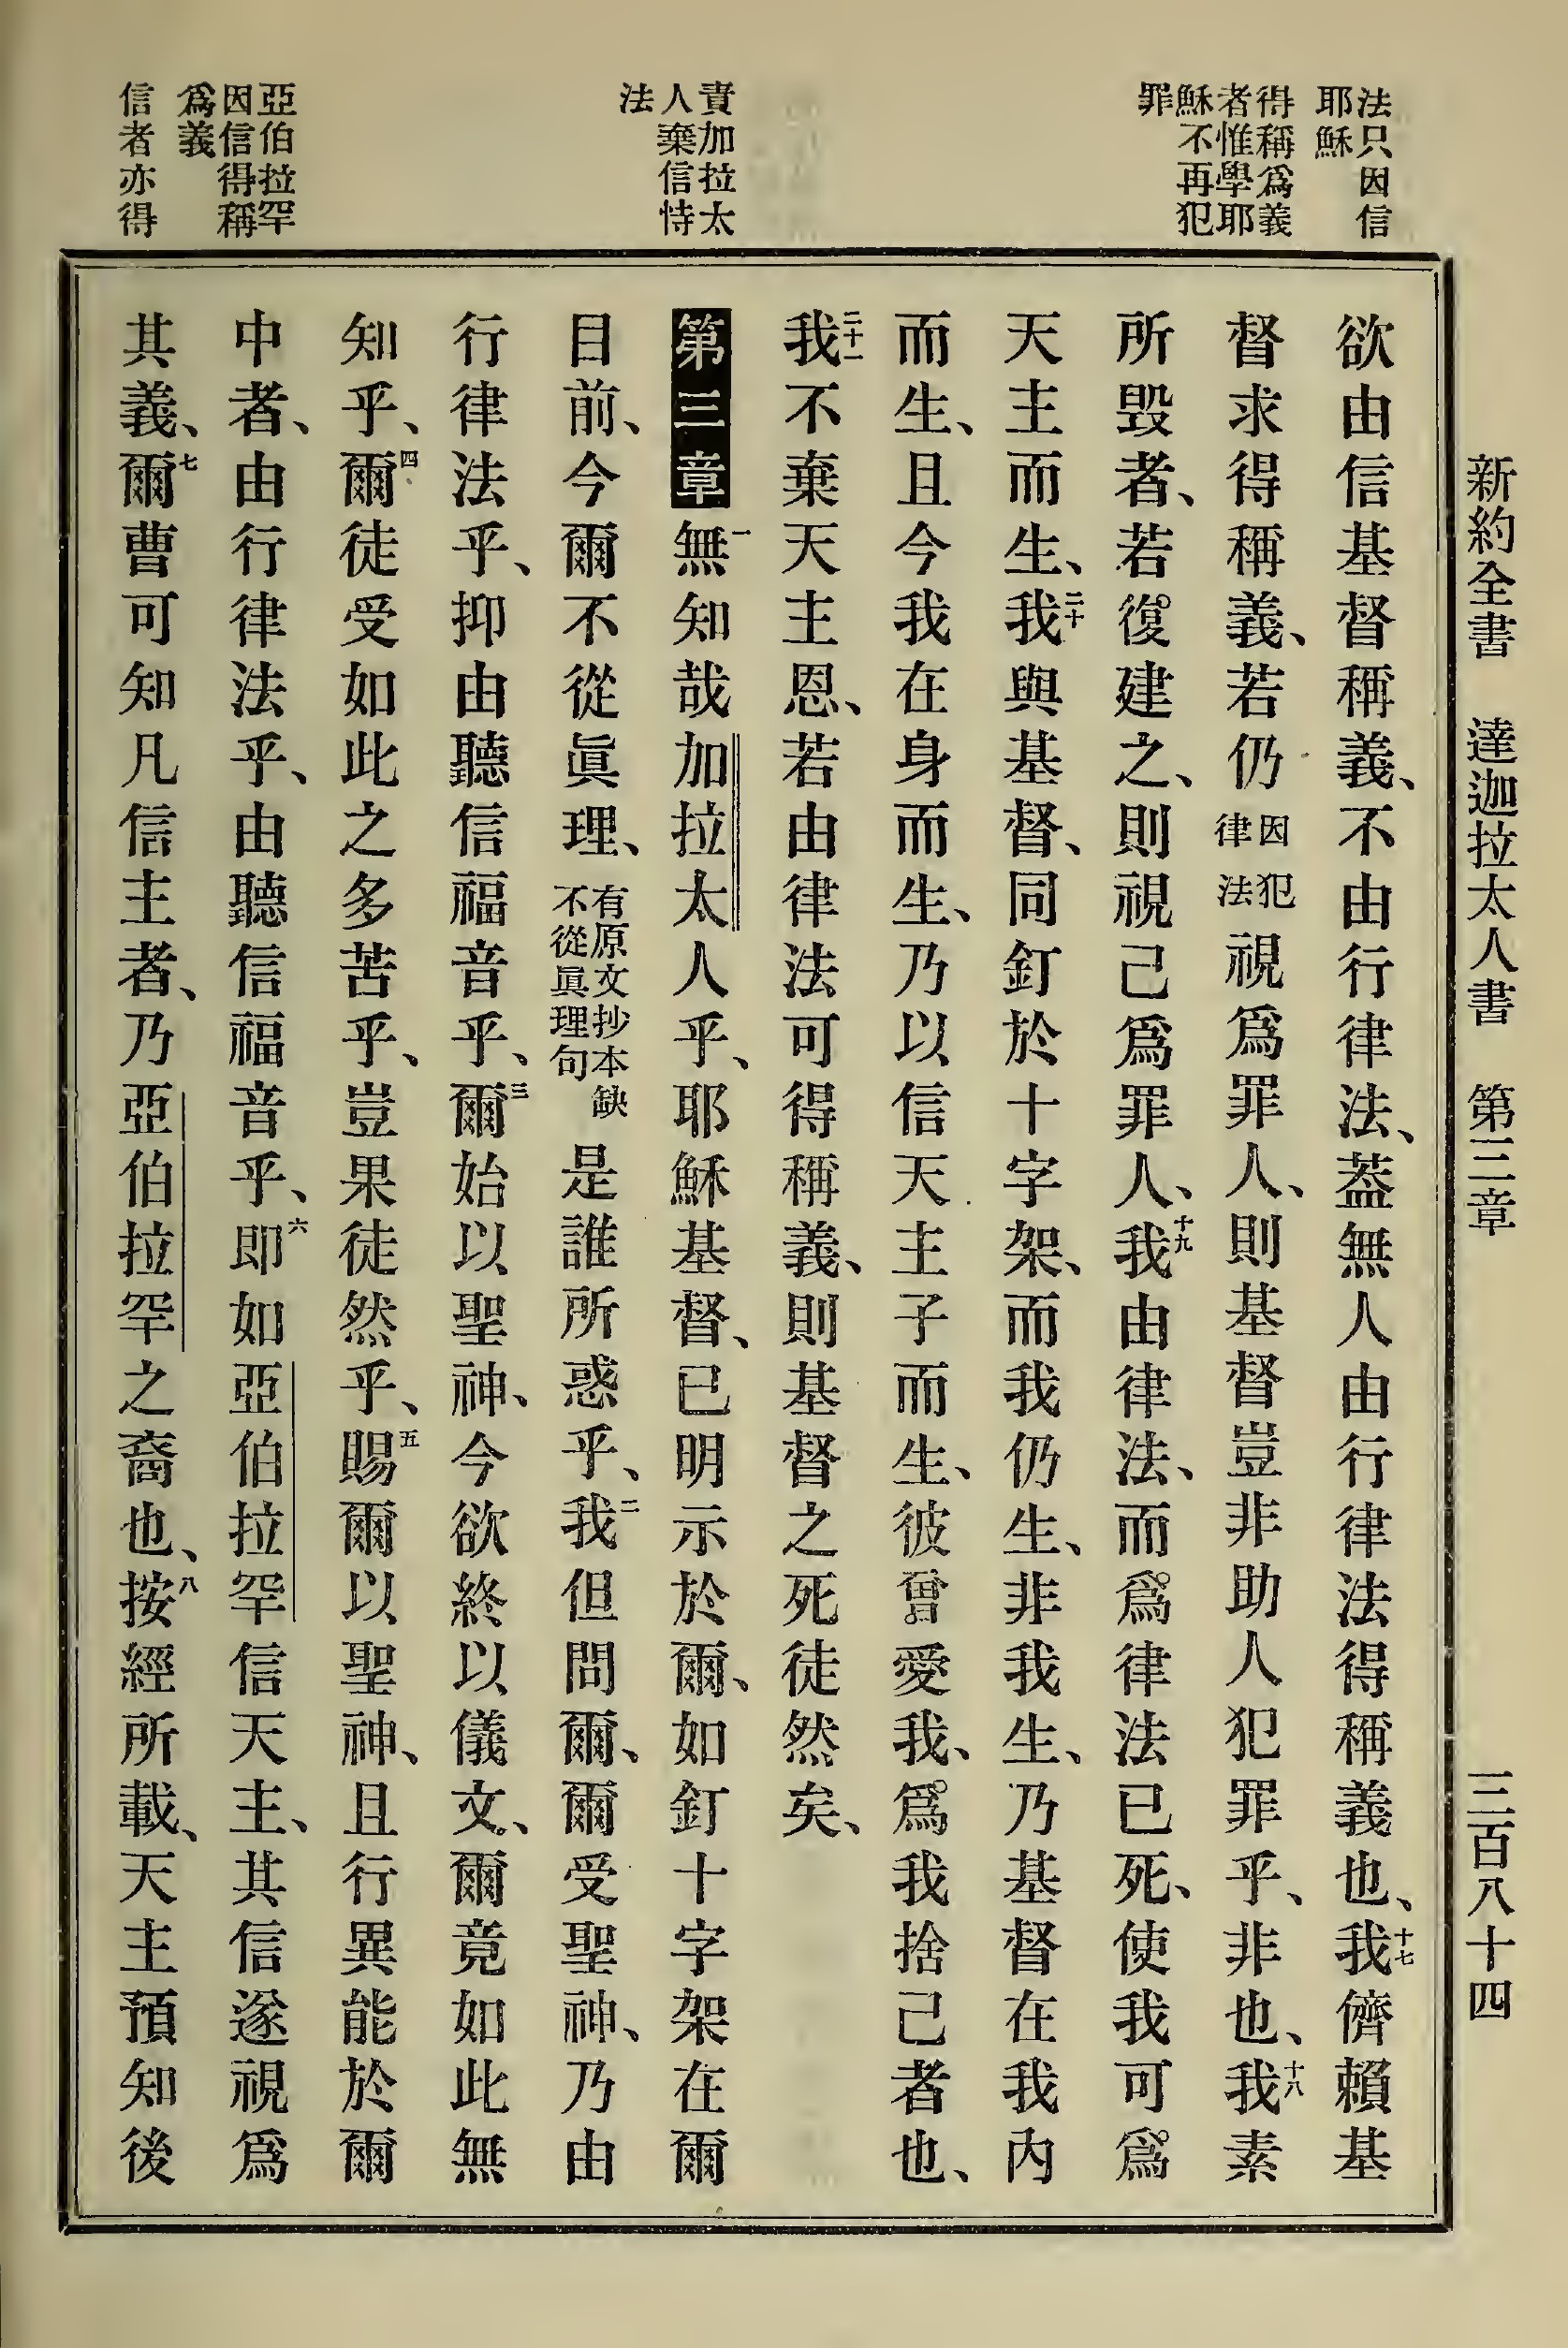 新約全書 達迦拉太人書 第三章 三百八十四
法只因信
耶穌
得稱爲義
者惟學耶
穌不再犯
罪
責加拉太
人棄信恃
法
亞伯拉罕
因信得稱
爲義
信者亦得
欲由信基督稱義、不由行律法、蓋無人由行律法得稱義也、十七我儕賴基
督求得稱義、若仍因犯律法視爲罪人、則基督豈非助人犯罪乎、非也、十八我素
所毀者、若復建之、則視己爲罪人、十九我由律法、而爲律法已死、使我可爲
天主而生、二十我與基督、同釘於十字架、而我仍生、非我生、乃基督在我內
而生、且今我在身而生、乃以信天主子而生、彼曾愛我、爲我捨己者也、
二十一我不棄天主恩、若由律法可得稱義、則基督之死徒然矣、
第三章 一無知哉加拉太人乎、耶穌基督、已明示於爾、如釘十字架在爾
目前、今爾不從眞理、有原文抄本缺不從眞理句是誰所惑乎、二我但問爾、爾受聖神、乃由
行律法乎、抑由聽信福音乎、三爾始以聖神、今欲終以儀文、爾竟如此無
知乎、四爾徒受如此之多苦乎、豈果徒然乎、五賜爾以聖神、且行異能於爾
中者、由行律法乎、由聽信福音乎、六即如亞伯拉罕信天主、其信遂視爲
其義、七爾曹可知凡信主者、乃亞伯拉罕之裔也、八按經所載、天主預知後